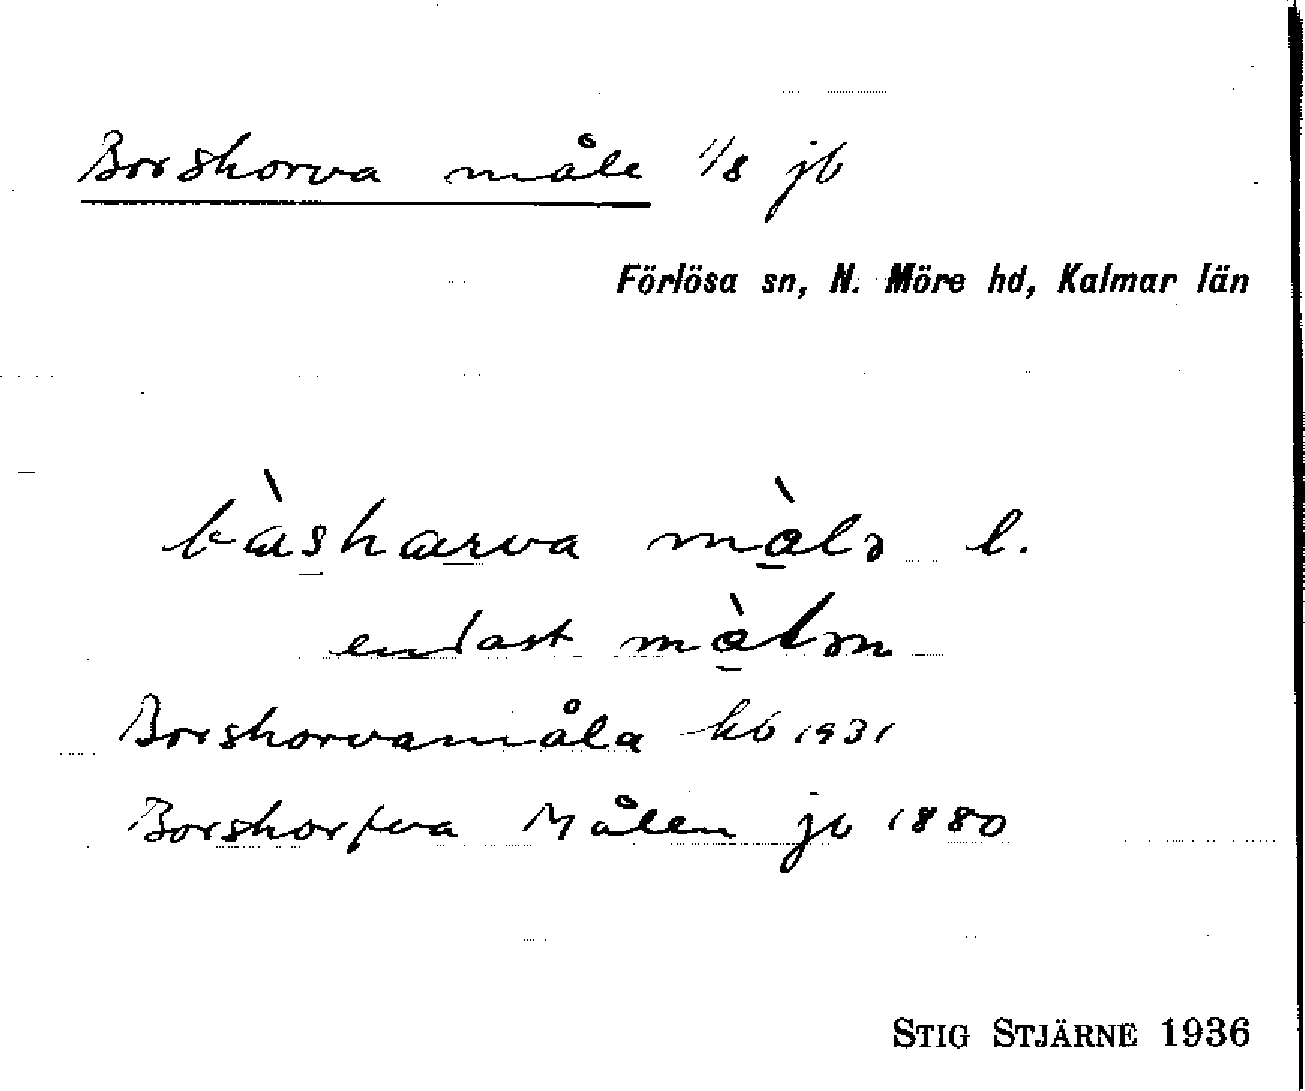 Borshorva måle 1/8 jb
Förlösa sn, N. Möre hd, Kalmar län
bàsharva màlə l.
endast màlən
Borshorvamåla kb 1931
Borshorfva Målen jb 1880
STIG STJÄRNE 1936